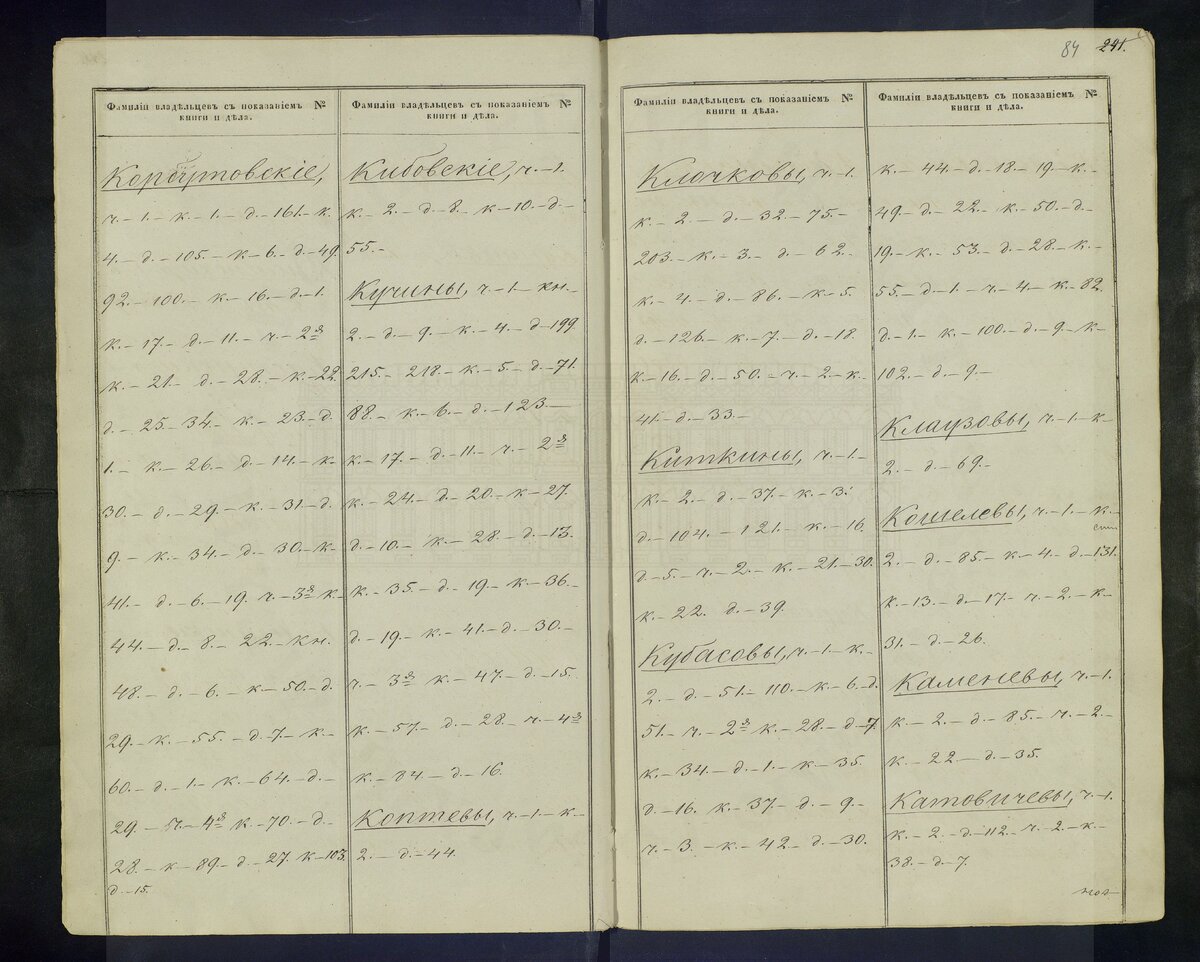 84 241.
Фамиліи владѣльцевъ съ показаніемъ №
книги и дѣла.
Корбутовскіе,
ч.–1.–к.–1.–д.–161.–к.
4.–д.–105.–к–6.–д.–49.
92.–100.–к.–16.–д.–1.
к.–17.–д.–11.–ч.–2я
к.–21.–д.–28.–к.–22.
д.–25.–34.–к.–23.–д.
1.–к.–26.–д.–14.–к.
30.–д.–29.–к.–31.–д.
9.–к.–34.–д.–30.–к.
41.–д.–6.–19. ч.–3я к.
44.–д.–8.–22.–кн.
48.–д.–6.–к–50.–д.
29.–к.–55.–д–7.–к–
60.–д.–1–к.–64.–д.–
29.–ч.–4я к.–70.–д.–
28.–к–89.–д–27. к–103.
д.–15.
Фамиліи владѣльцевъ съ показаніемъ №
книги и дѣла.
Кибовскіе, ч.–1.
к.–2.–д–8.–к–10.–д–
55.–
Кучины, ч.–1–кн.–
2.–д.–9.–к.–4.–д–199
215.–218.–к–5.–д–71.
88.–к–6.–д.–123.–
к.–17.–д.–11.–ч.–2я
к.–24.–д.–20.–к–27.
д.–10.–к.–28.–д.–13.
к.–35.–д.–19.–к–36.–
д.–19.–к.–41.–д.–30.–
ч.–3я к.–47.–д.–15.
к.–57.–д.–28.–ч.–4я
к.–84.–д.–16.
Коптевы, ч.–1.–к–
2.–д.–44.
Фамиліи владѣльцевъ съ показаніемъ №
книги и дѣла.
Клочковы, ч.–1.
к.–2.–д.–32.–75.–
203.–к.–3.–д.–62.–
к.–4.–д–86.–к–5.
д.–126.–к.–7.–д.–18.
к.–16.–д.–50.–ч.–2.–к.
41.–д.–33.–
Киткины, ч.–1–
к.–2.–д.–37.–к.–3.
д.–104.–121.–к.–16.
д.–5.–ч.–2.–к.–21.–30.
к.–22. д.–39.
Кубасовы, ч.–1–к.–
2.–д.–51.–110.–к–6.–д.
51.–ч.–2я к.–28.–д–7.
к.–34.–д.–1.–к–35.
д–16. к.–37.–д–9.–
ч.–3.–к.–42–д.–30.
Фамиліи владѣльцевъ съ показаніемъ №
книги и дѣла.
к.–44.–д.–18.–19–к.–
49.–д.–22.–к.–50.–д.
19.–к.–53.–д–28.–к.–
55.–д–1.–ч–4.–к.–82.
д–1.–к.–100.–д–9.–к–
102.–д–9.–
Клаузовы, ч.–1.–к
2.–д.–69.–
Кошелевы, ч.–1–к.–
2.–д.–85.–к–4.–д–131.
к.–13.–д.–17.–ч.–2.–к–
31.–д.–26.
Каменевы, ч.–1.
к.–2.–д–85.–ч.–2.–
к.–22–д.–35.
Катовичевы, ч.–1.
к.–2.–д–112.–ч.–2.–к.–
38.–д.–7.